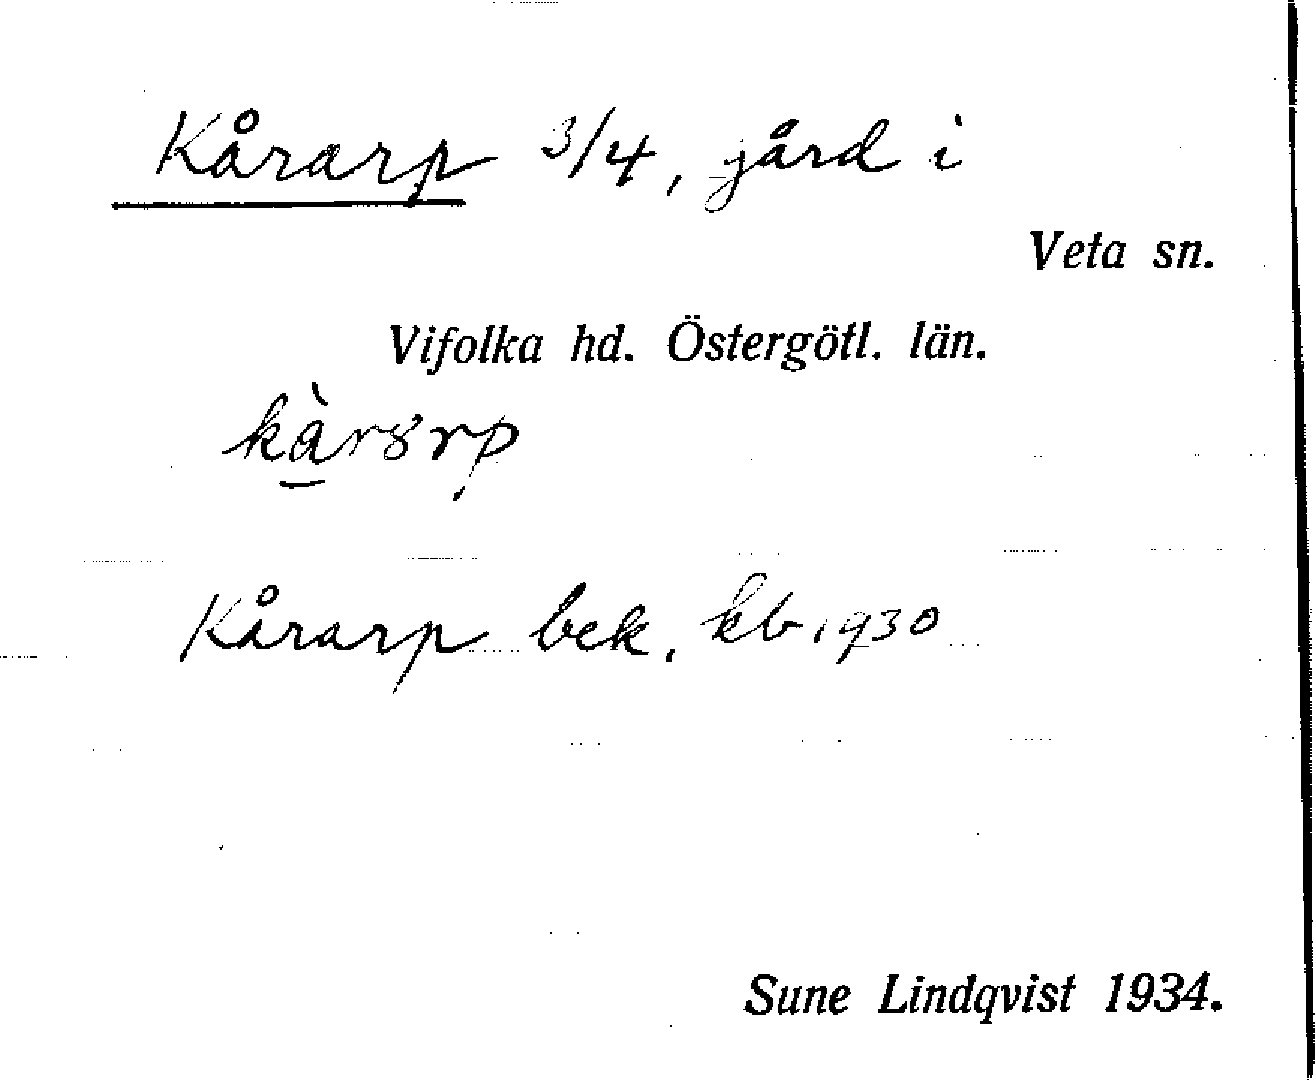 Kårarp 3/4, gård i
Veta sn.
Vifolka hd. Östergötl. län.
Kårarp bek. kb. 1930
Sune Lindqvist 1934.